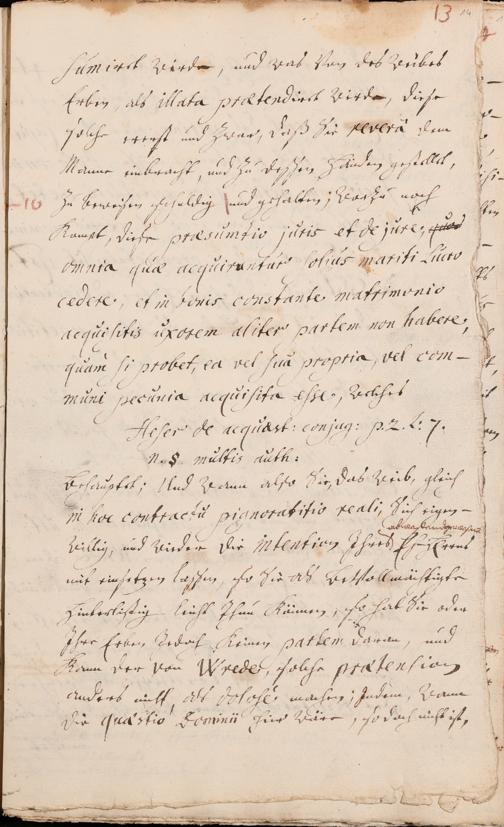 13
sumirt werde, und was von des Weibes
Erben, als illata prætendirt werde, diese
solche erenst und zwar, daß Sie reverâ dem
Manne einbracht, und zu dessen Händen gestellet,
10 zu beweisen schuldig und gehalten; worzu noch
kompt, diese præsumtio juris et de jure, quod
omnia quæ acquiruntur solius mariti lucro
cedere, et in bonis constante matrimonio
acquisitis uxorem aliter partem non habere,
quam si probet, ea vel sua propria, vel com-
muni pecunia acquisita esse, welches
Heser de acquæst: conjug: p. 2. l. 7.
n. 8 multis auth:
behauptet; Und wann also Sie, das Weib, gleich
in hoc contractu pignoratitio reali, Sich eigen-
willig, und wieder die intention Ihres Eheherrens
mit einsetzen lassen, so Sie als Bevollmächtigte
hinterlistig leicht thun können, so hat Sie oder
Ihre Erben jedoch keinen partem daran, und
kann der von Wrede, solche prætension
anders nicht, als dolosè machen; Indem, wann
die quæstio Dominii hier wäre, so doch nicht ist,